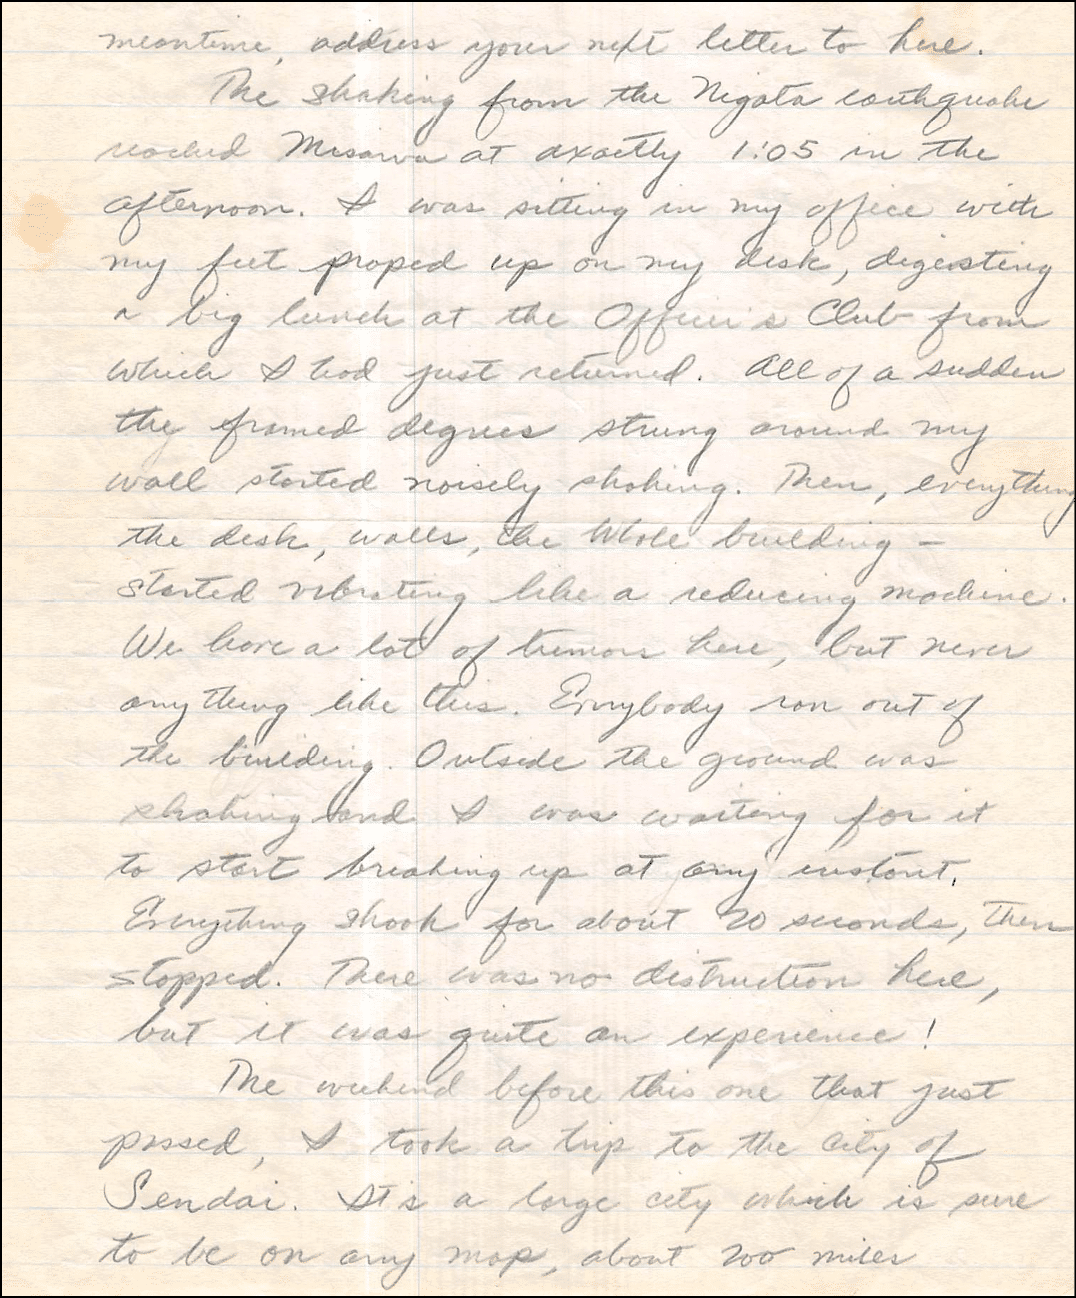 meantime, address your next letter to here.
The shaking from the Nigata earthquake
reached Misawa at axactly 1:05 in the
afternoon. I was sitting in my office with
my feet proped up on my desk, digesting
a big lunch at the Officer's Club from
which I had just returned. All of a sudden
the framed degrees strung around my
wall started noisely shaking. Then, everything
the desk, walls, the whole building –
started vibrating like a reducing machine.
We have a lot of tremors here, but never
anything like this. Everybody ran out of
the building. Outside the ground was
shaking and I was waiting for it
to start breaking up at any instant.
Everything shook for about 20 seconds, then
stopped. There was no distruction here,
but it was quite an experience!
The weekend before this one that just
passed, I took a trip to the city of
Sendai. It's a large city which is sure
to be on any map, about 200 miles